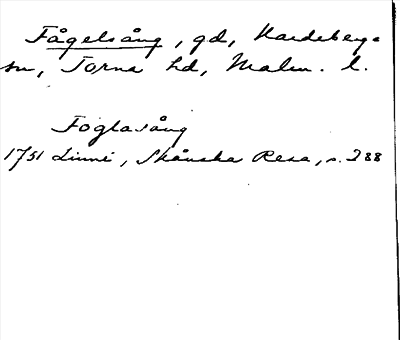 Fågelsång, gd, Hardeberga
sn, Torna hd, Malm. l.
Foglasång
1751 Linné, Skånska Resa, s. 288